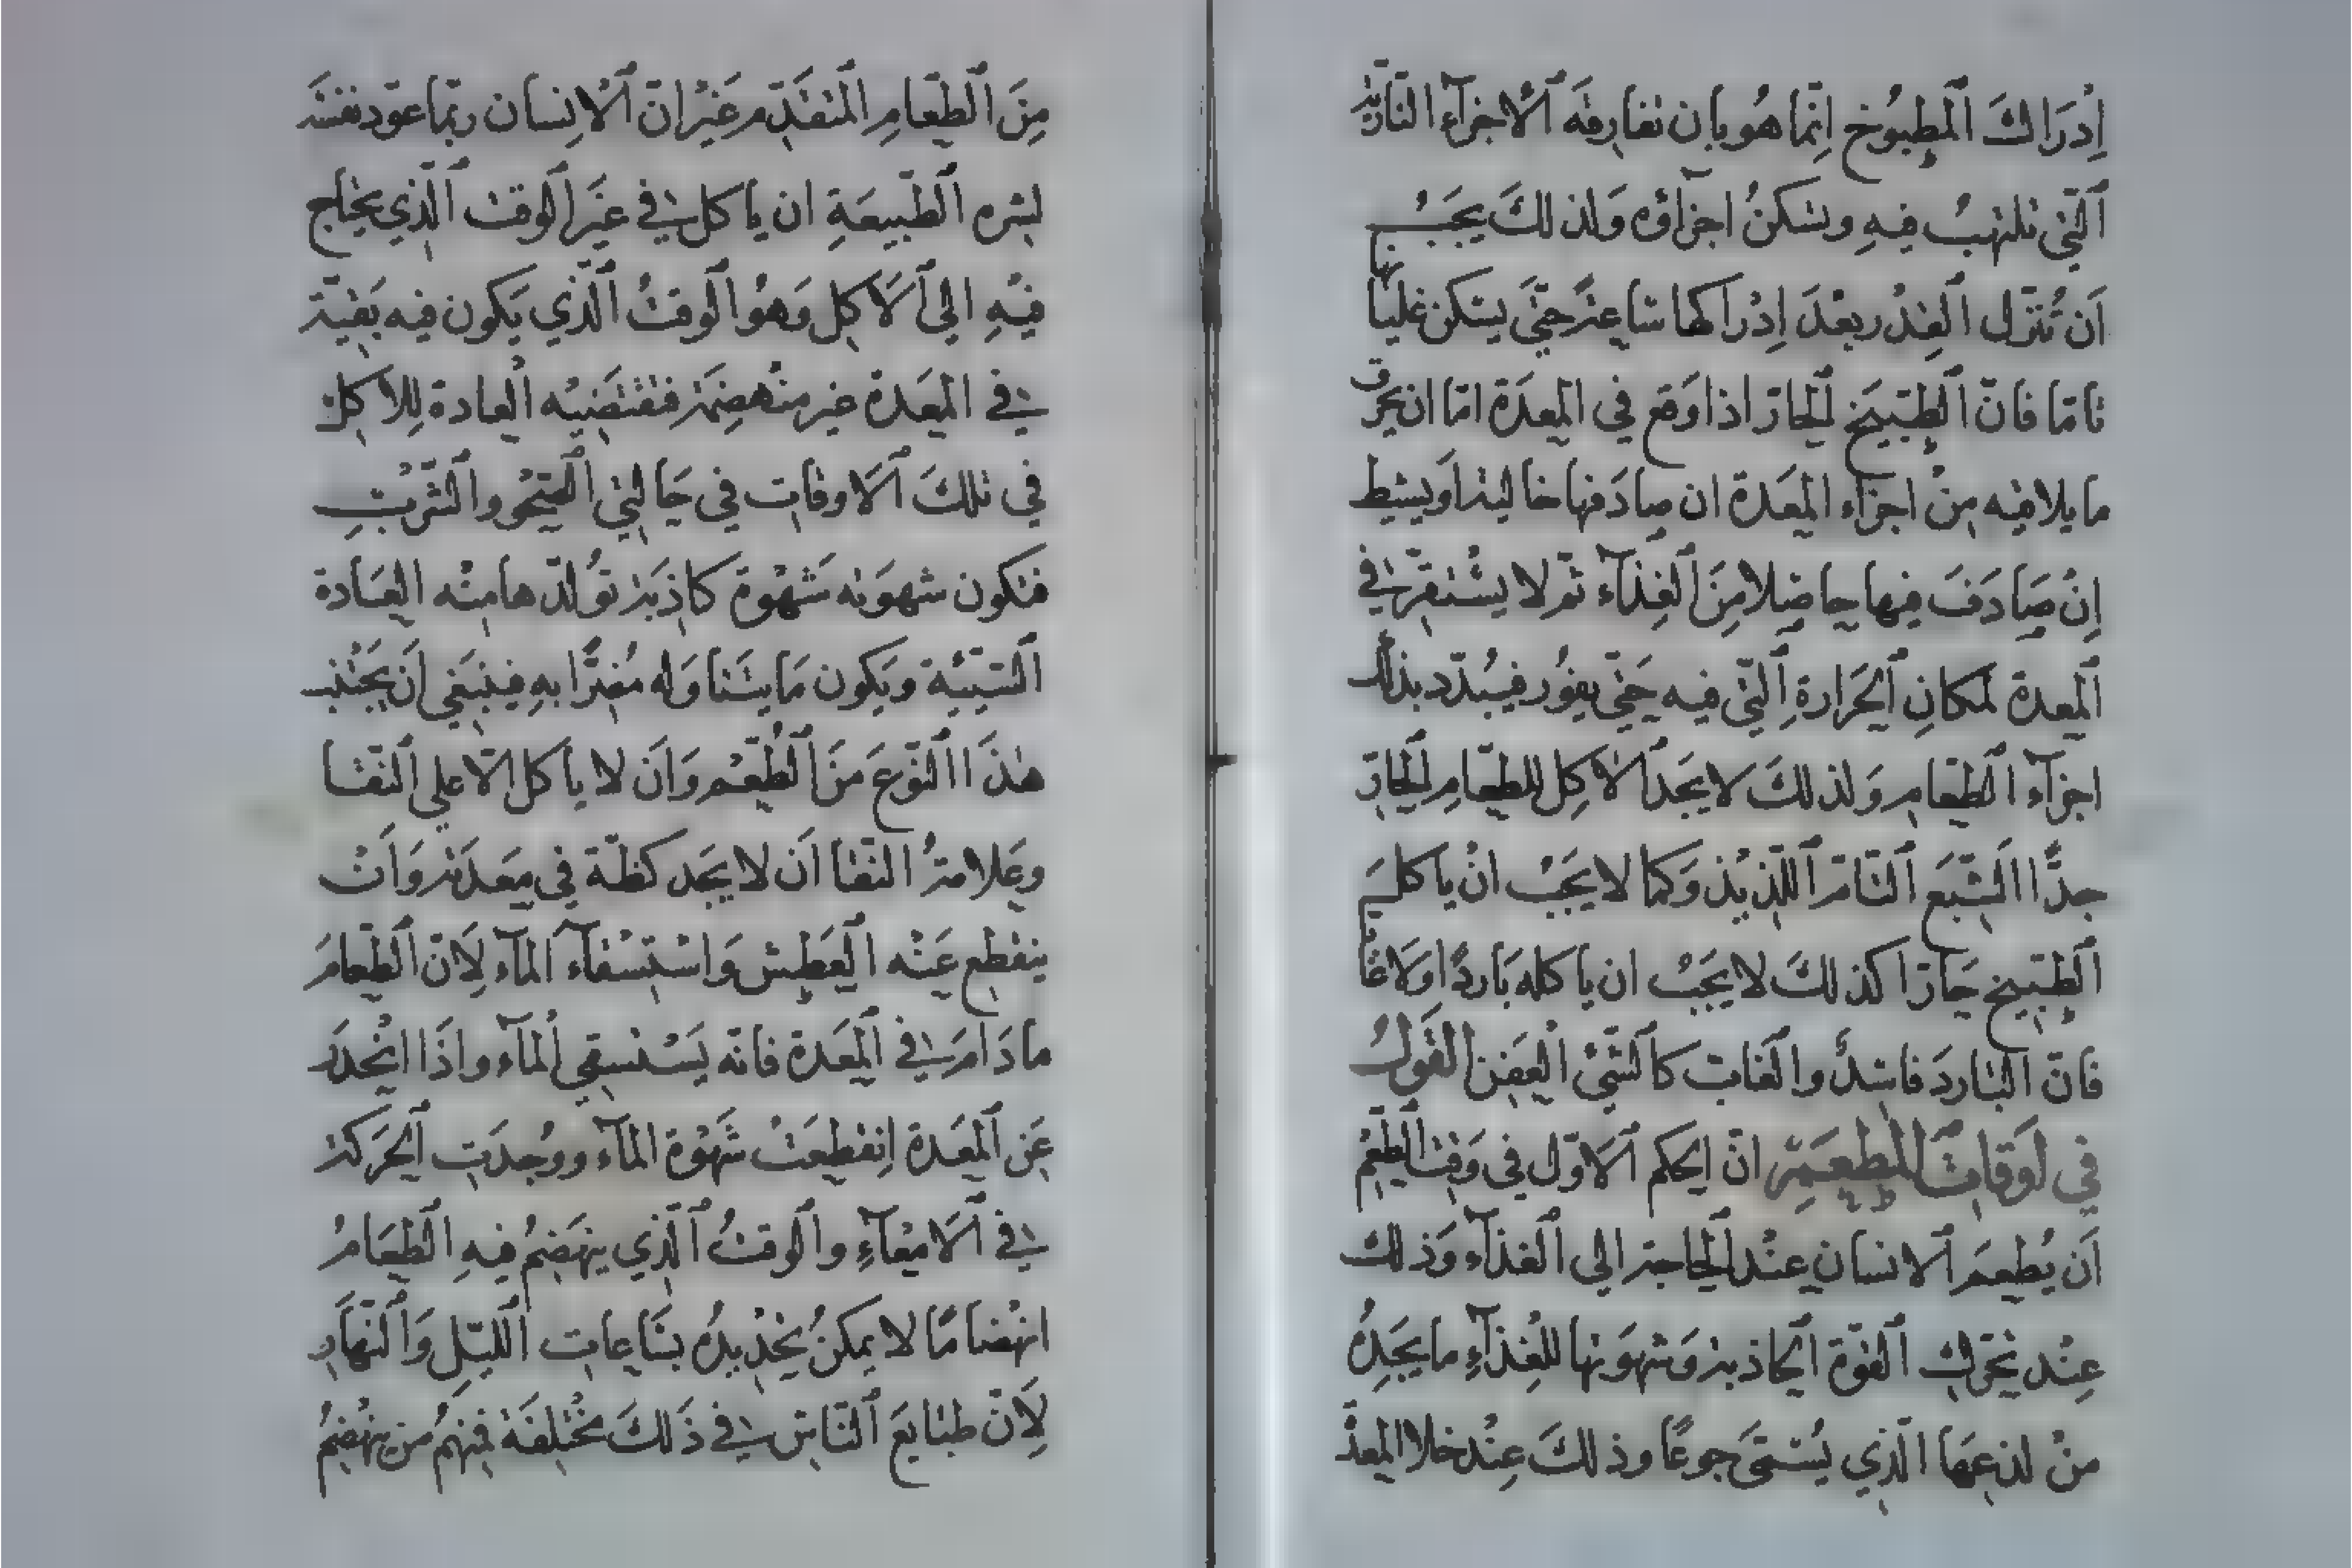 اِدْرَاكَ اَلْمَطبُوُخِ اِنّمَا هُو بان تفارِقَه اَلاجزآء الناريّة
اَلّتى تلتهبُ فيهِ وتسكنُ اجزآؤه وَلذلكَ يجَبُ
اَن تُنزل اَلقِدْر بعْدَ اِدْراكها سَاعةً حتَّى يسكن غليانها
تامّا فانّ اَلطبّيخ اَلحارّ اذا وَقع في المعِدَة امّا ان يحرق
ما يلاقيه مِنْ اجزاء المعَدة ان صادَفها خالية اَو يشيط
اِنْ صَادَفَ فيها حاصِلا مِنَ اَلغِذآء ثمّ لا يسْتقرّ في
اَلمعدة لمكانِ اَلحَرارةِ اَلتّى فيه حَتّى يفوُر فيبُدّد بذلك
اجزآء اَلطعّام وَلذلكَ لا يجَد اَلاكِل للطّعامِ اَلحارّ
جدًّا اَلشّبَع اَلتّامّ اَللّذيْذ وَكما لا يجَبُ انْ ياكلَ
اَلطبّيخ حَارّا كذلكَ لا يجَبُ ان ياكله بَاردًا وَلا غابّا
فانّ البّاردَ فاسدٌ والَغابّ كالَشّئ الْعَفِن القَولُ
في اَوقاتِ المطعَمِ انّ الحكم اَلاوّل في وَقت اَلطّعْمِ
اَن يُطعمَ اَلانسان عنْد اَلحاجة الى اَلغذآء وَذلك
عِنْد تحَرّك اَلقوّة اَلجاذبة وَشهوَتها للغِذآءِ ما يجَدِهُ
منْ لذعهَا الذي يُسْمّى جوعًا وذلكَ عِنْد خلا المعدَة
مِنَ اَلطّعَامِ اَلمتقدّم غَيْر انّ اَلْانِسان ربمّا عوّد نفسَه
لشره اَلطّبيعَةِ ان ياكل في غَيَر اَلوقت اَلّذي يحتاج
فيهِ الى اَلاَكِل وَهوُ اَلوقتُ اَلّذي يَكون فيه بقيّة
في المعَدة غير منْهضِمَة فتقتضيْه اَلعادة لِلاكل
في تلكَ اَلاوقات في حَالتي اَلصّحْو والَشّربْ
فتكون شهوَته شَهْوة كاذِبَة توُلدّها منْه العَادة
اَلسّيّئة وَيكون مَا يتَناوَله مُضرًّا بهِ فينبَغي اَن يَجْتنبَ
هٰذَا اَلنّوْعَ مِنَ اَلطُّعْم وَاَن لا يأكل الّا على اَلنقّا
وعَلامةُ النّقا اَن لا يجَد كظّة في معَدته وَاَنْ
ينقطع عَنْه اَلعَطش وَاسْتِسْقآء اَلمآء لِاَنّ اَلطّعامَ
ما دَامَ في اَلمعَدة فانّه يَسْتسقى اَلمآء واذَا انْحَدَرَ
عَن اَلمعَدة اِنقطعَتْ شَهْوة المآء ووُجدَت اَلحَركة
في اَلاَمعْآءِ والَوقتُ اَلّذي ينهَضمُ فيهِ اَلطعَامُ
انهْضامًا لا يمكنُ تحْديدُه بسَاعات اَللّيَل وَاَلنّهار
لِاَنّ طبَايعَ اَلنّاس في ذَلكَ مخْتلفَة فمِنهمُ من ينهَضِمُ